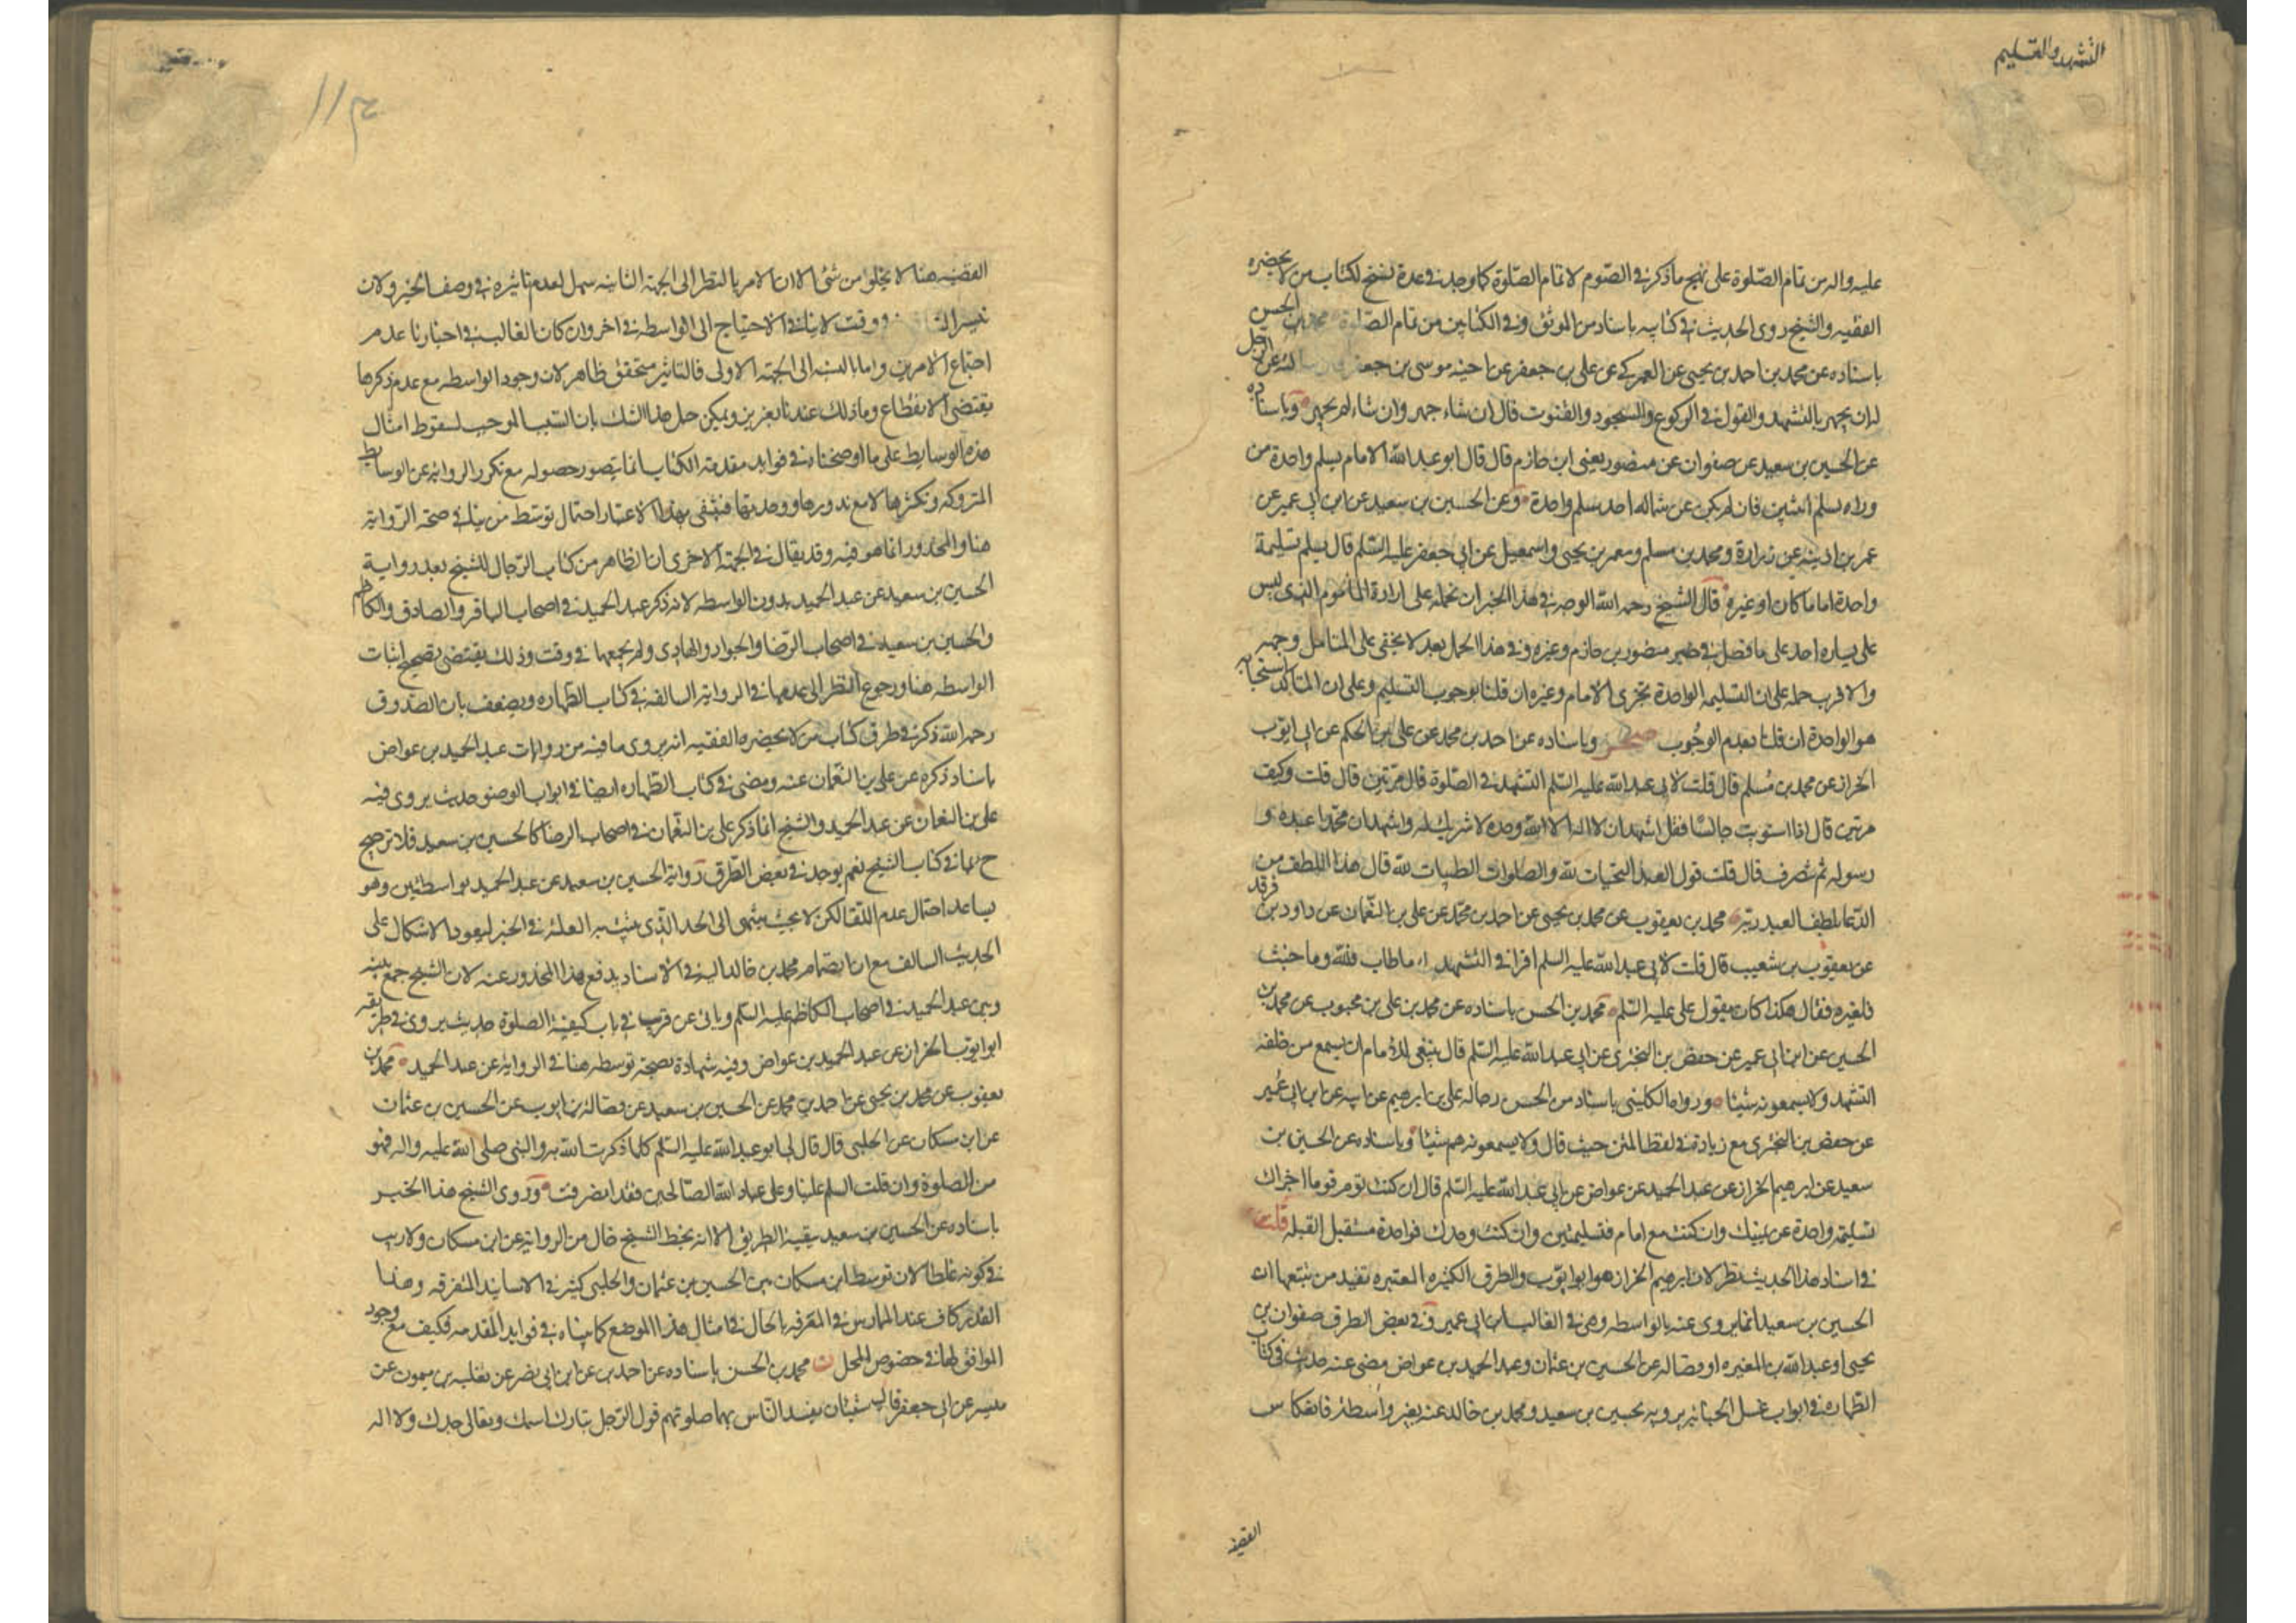 التشهد والتسليم
عليه واله من تمام الصّلوة على نهج ما ذكر في الصّوم لا تمام الصّلوة كما وجد في عدة نسخ لكتاب من لا يحضره
الفقيه والشيخ روى الحديث في كتابيه باسناد من الموثق وفي الكتابين من تمام الصلوة محمد بن الحسن
باسناده عن محمد بن احمد بن يحيى عن العمركي عن علي بن جعفر عن اخيه موسى بن جعفر عن الرجل
له ان يجهر بالتشهد والقول في الركوع والسجود والقنوت قال ان شاء جهر وان شاء لم يجهر وباسناده
عن الحسين بن سعيد عن صفوان عن منصور يعني ابن حازم قال قال ابو عبد الله الامام يسلم واحدة من
وراه يسلم اثنتين فان لم يكن عن شماله احد سلم واحدة وعن الحسين بن سعيد عن ابن ابي عمير عن
عمر بن اذينه عن زرارة ومحمد بن مسلم ومعمر بن يحيى واسمعيل عن ابي جعفر عليه السّلم قال يسلم تسليمة
واحدة اماما كان او غيره قال الشيخ رحمه الله الوجه في هذا الخبر ان نحمله على ارادة المأموم الذي ليس
على يساره احد على ما فصل في خبر منصور بن حازم وغيره وفي هذا الحمل بعد لا يخفى على المتامل وجهه
والاقرب حمله على ان التسليمه الواحدة تجزى الامام وغيره ان قلنا بوجوب التسليم وعلى ان المتاكد استحبابه
هو الواحدة ان قلنا بعدم الوجُوب صحر وباسناده عن احمد بن محمد عن علي بن الحكم عن ابي ايّوب
الخراز عن محمد بن مُسلم قال قلت لابي عبد الله عليه السّلم التشهد في الصّلوة قال مرّتين قال قلت وكيف
مرتين قال اذا استويت جالسًا فقل اشهد ان لا اله الا الله وحده لا شريك له واشهد ان محمّدا عبده و
رسوله ثم تنصرف قال قلت قول العبد التحيات لله والصلوات الطيبات لله قال هذا اللطف من
الدّعا يلطف العبد ربّه محمد بن يعقوب عن محمد بن يحيى عن احمد بن محمّد عن علي بن النّعمان عن داود بن فرقد
عن يعقوب بن شعيب قال قلت لابي عبد الله عليه السلم اقرا في التشهد ما طاب فلله وما خبث
فلغيره فقال هكذا كان يقول علي عليه السّلم محمد بن الحسن باسناده عن محمد بن علي بن محبوب عن محمد بن
الحسين عن ابن ابي عمير عن حفص بن البختري عن ابي عبد الله عليه السّلم قال ينبغي للامام ان يسمع من خلفه
التشهد ولا يسمعونه شيئا ورواه الكليني باسناد من الحسن رجاله علي بن ابرهيم عن ابيه عن ابن ابي عُمير
عن حفص بن البختري مع زيادة في لفظ المتن حيث قال ولا يسمعونه هم شيئا وباسناده عن الحسين بن
سعيد عن ابرهيم الخراز عن عبد الحميد عن عواض عن ابي عبد الله عليه السّلم قال ان كنت تؤم قوما اجزاك
تسليمة واحدة عن يمينك وان كنت مع امام فتسليمتين وان كنت وحدك فواحدة مستقبل القبلة قلت
في اسناد هذا الحديث نظر لان ابرهيم الخراز هو ابو ايّوب والطرق الكثيره المعتبره تفيد من تتبعها ان
الحسين بن سعيد انما يروى عنه بالواسطه وهي في الغالب ابن ابي عمير وفي بعض الطرق صفوان بن
يحيى او عبد الله بن المغيره او فضاله عن الحسين بن عثمان وعبد الحميد بن عواض مضى عنه حديث في كتاب
الطهارة في ابواب غسل الجنابة يرويه حسين بن سعيد ومحمد بن خالد عنه بغير واسطة فانعكاس
القضيه
القضيه هنا لا يخلو من شئ الا ان الامر بالنظر الى الجهة الثانيه سهل لعدم تاثيره في وصف الخبر ولان
وقت لا ينافي الاحتياج الى الواسطه في اخر وان كان الغالب في اخبارنا عدم
اجتماع الامرين واما بالنسبه الى الجهة الاولى فالتاثير متحقق ظاهر لان وجود الواسطه مع عدم ذكرها
يقتضي الانقطاع وما ذلك عندنا بعزيز ويمكن حل هذا الشك بان السّبب الموجب لسقوط امثال
هذه الوسايط على ما اوضحناه في فوايد مقدمة الكتاب انما يتصور حصوله مع تكرر الروايه عن الوسايط
المتروكه وتكثرها لا مع ندورها ووحدتها فينتفى بهذا الاعتبار احتمال توسّط من ينافي صحة الرّواية
هنا والمحذور انما هو فيه وقد يقال في الجهة الاخرى ان الظاهر من كتاب الرّجال للشيخ بعد رواية
الحسين بن سعيد عن عبد الحميد بدون الواسطه لانه ذكر عبد الحميد في اصحاب الباقر والصادق والكاظم
والحسين بن سعيد في اصحاب الرّضا والجواد والهادي ولم يجمعهما في وقت وذلك يقتضي تصحيح اثبات
الواسطه هنا ورجوع النظر الى عدمها في الرواية السالفه في كتاب الطهاره ويضعف بان الصّدوق
رحمه الله ذكر في طرق كتاب من لا يحضره الفقيه انه يروى ما فيه من روايات عبد الحميد بن عواض
باسناد ذكره عن علي بن النعمان عنه ومضى في كتاب الطهاره ايضا في ابواب الوضو حديث يروى فيه
علي بن النعمان عن عبد الحميد والشيخ انما ذكر علي بن النعمان في اصحاب الرضا كالحسين بن سعيد فلا ترجيح
ح لما في كتاب الشيخ نعم يوجد في بعض الطّرق رواية الحسين بن سعيد عن عبد الحميد بواسطتين وهو
يساعد احتمال عدم اللقا لكن لا بحيث ينتهي الى الحد الذي يثبت به العلة في الخبر ليعود الاشكال على
الحديث السالف مع ان انضمام محمد بن خالد اليه في الاسناد يدفع هذا المحذور عنه لان الشيخ جمع بينه
وبين عبد الحميد في اصحاب الكاظم عليه السّلم وياتي عن قريب في باب كيفية الصلوة حديث يروى في طريقه
ابو ايّوب الخراز عن عبد الحميد بن عواض وفيه شهادة بصحة توسطه هنا في الروايه عن عبد الحميد محمد بن
يعقوب عن محمد بن يحيى عن احمد بن محمد عن الحسين بن سعيد عن فضالة بن ايوب عن الحسين بن عثمان
عن ابن مسكان عن الحلبي قال قال لي ابو عبد الله عليه السّلم كلما ذكرت الله به والنبي صلى الله عليه واله فهو
من الصلوة وان قلت السلم علينا وعلى عباد الله الصّالحين فقد انصرفت وروى الشيخ هذا الخبر
باسناده عن الحسين بن سعيد ببقية الطريق الا انه بخط الشيخ خال من الرواية عن ابن مسكان ولا ريب
في كونه غلطا لان توسط ابن مسكان بين الحسين بن عثمان والحلبي كثير في الاسانيد المتفرقه وهذا
القدر كاف عند الممارس في المعرفه بالحال في امثال هذا الموضع كما بيناه في فوايد المقدمه فكيف مع وجود
الموافق لها في خصوص المحل ن محمد بن الحسن باسناده عن احمد بن عن ابن ابي نصر عن ثعلبه بن ميمون عن
ميسر عن ابي جعفر قال شيئان يفسد الناس بهما صلوتهم قول الرّجل تبارك اسمك وتعالى جدك ولا اله